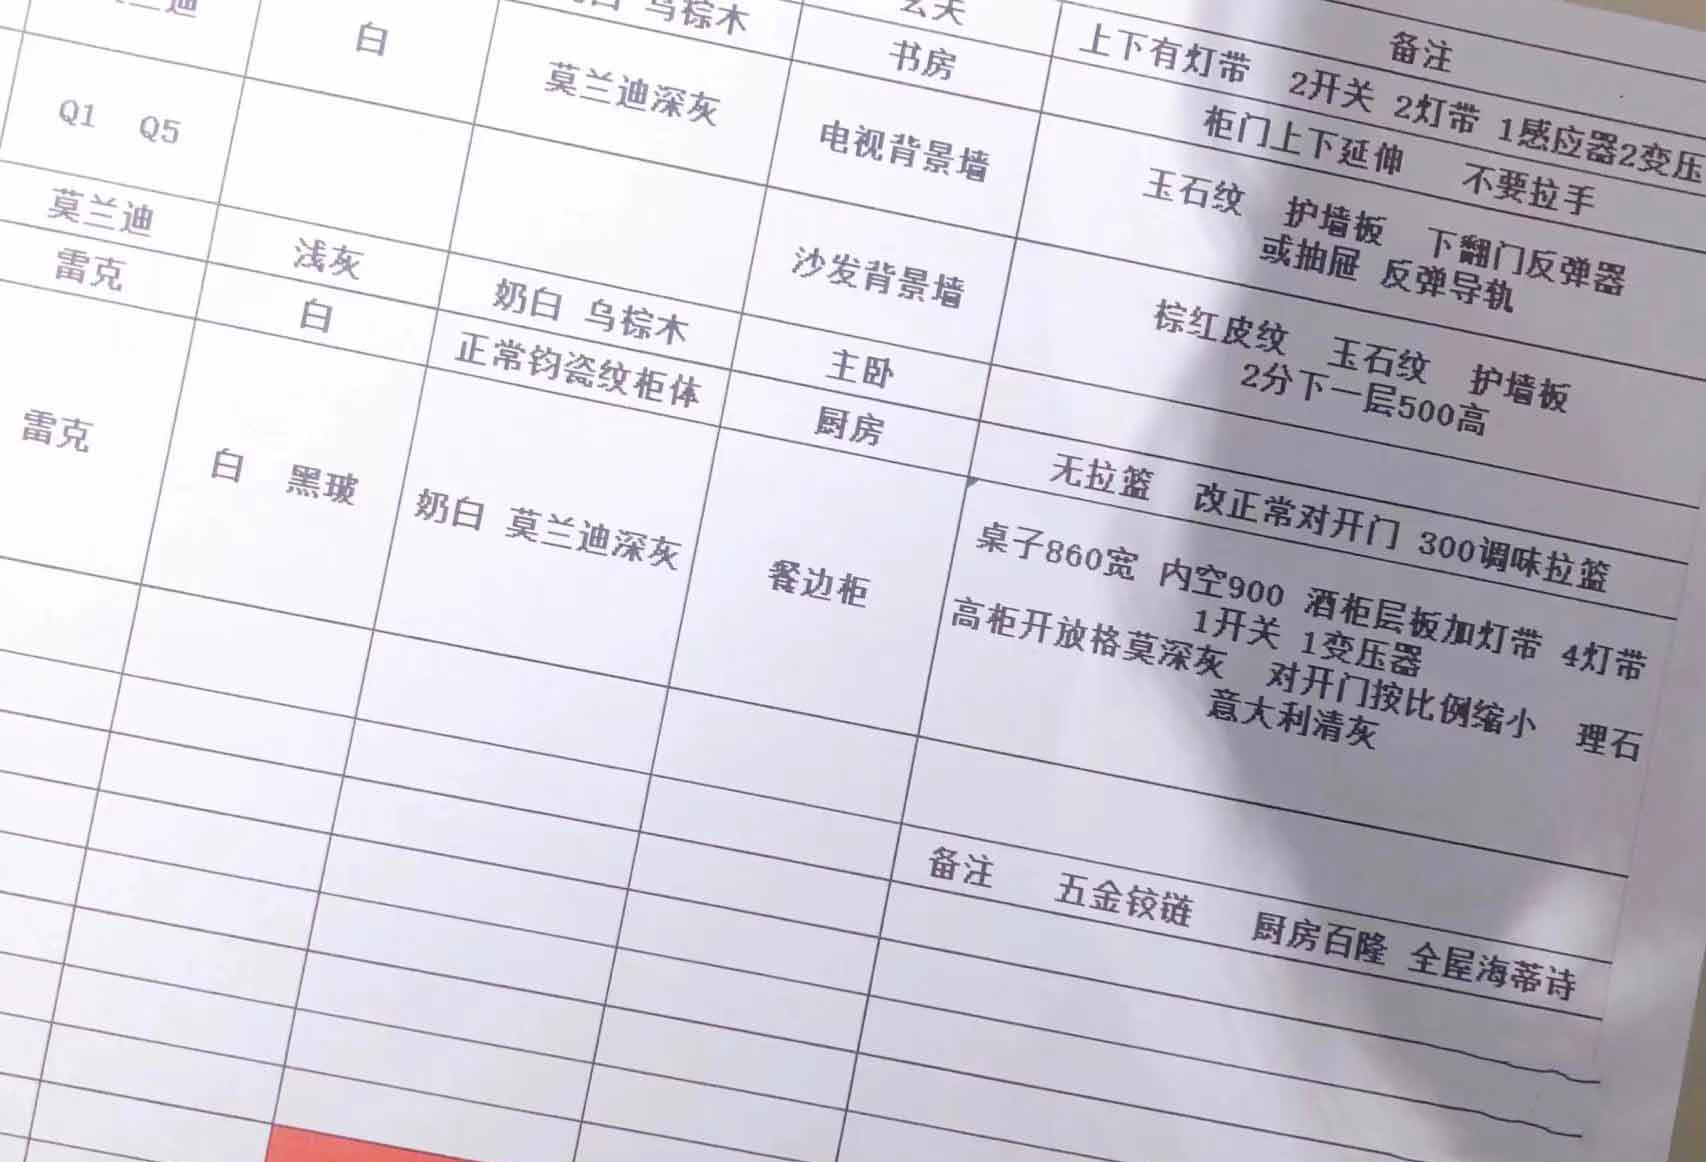 备注
白 上下有灯带 2开关 2灯带 1感应器2变压
莫兰迪深灰 书房 柜门上下延伸 不要拉手
Q1 Q5 电视背景墙 玉石纹 护墙板 下翻门反弹器
或抽屉 反弹导轨
沙发背景墙 棕红皮纹 玉石纹 护墙板
2分下一层500高
莫兰迪 浅灰 奶白 乌棕木 主卧
雷克 白 正常钧瓷纹柜体 厨房 无拉篮 改正常对开门 300调味拉篮
雷克 白 黑玻 奶白 莫兰迪深灰 餐边柜 桌子860宽 内空900 酒柜层板加灯带 4灯带
1开关 1变压器
高柜开放格莫深灰 对开门按比例缩小 理石
意大利清灰
备注 五金铰链 厨房百隆 全屋海蒂诗